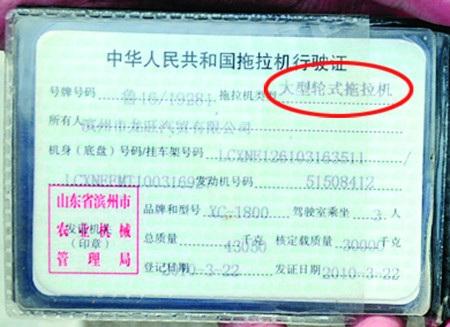 中华人民共和国拖拉机行驶证
号牌号码 鲁16/19281 拖拉机类型 大型轮式拖拉机
所有人 滨州市龙旺汽贸有限公司
机身(底盘)号码/挂车架号码 LCXNE126103163511 /
LCXNEEMT1003169 发动机号码 51508412
山东省滨州市
农业机械
管理局
发证机关
(印章)
品牌和型号 XC-1800 驾驶室乘坐 3 人
总质量 43050 千克 核定载质量 30000 千克
登记日期 2010-3-22 发证日期 2010-3-22